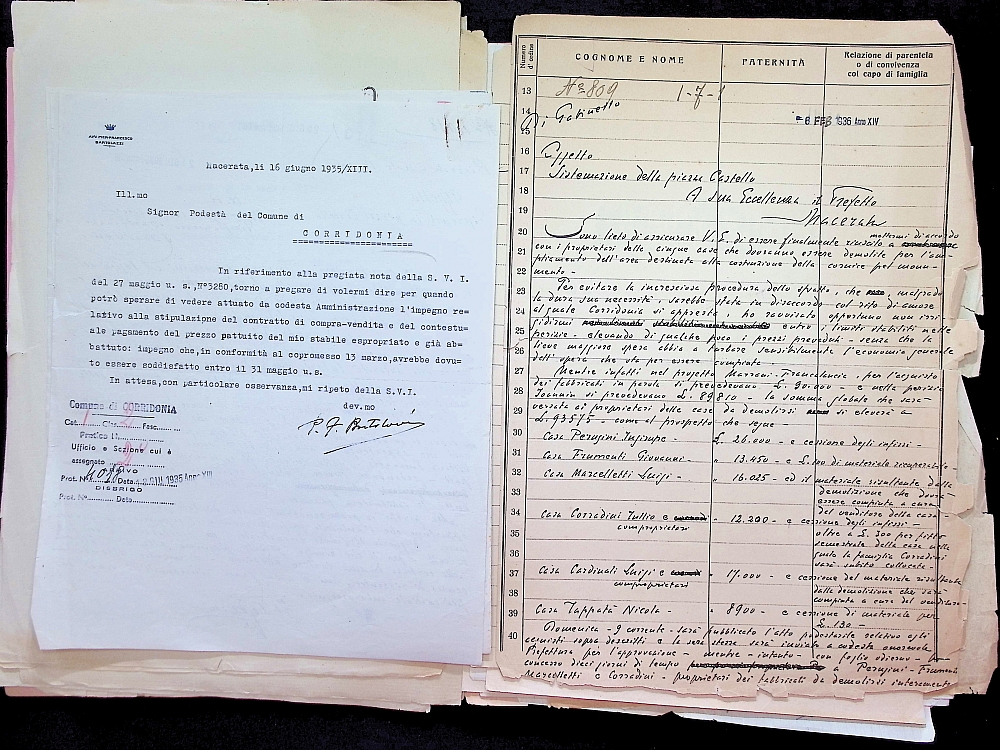 AVV. PIER FRANCESCO
BARTOLAZZI
Macerata,li 16 giugno 1935/XIII.
Ill.mo
Signor Podestà del Comune di
CORRIDONIA
In riferimento alla pregiata nota della S. V. I.
del 27 maggio u. s.,N°3250,torno a pregare di volermi dire per quando
potrò sperare di vedere attuato da codesta Amministrazione l'impegno re-
lativo alla stipulazione del contratto di compra-vendita e del contestu-
ale pagamento del prezzo pattuito del mio stabile espropriato e già ab-
battuto: impegno che,in conformità al copromesso 13 marzo,avrebbe dovu-
to essere soddisfatto entro il 31 maggio u.s.
In attesa,con particolare osservanza,mi ripeto della S.V.I.
dev.mo
Comune di CORRIDONIA
Cat. Clas. Fasc.
Pratica N.
Ufficio e Sezione cui è
assegnato
ARRIVO
Prot. N° Data GIU. 1935 Anno XIII
DISBRIGO
Prot. N° Data
Numero d'ordine
COGNOME E NOME
PATERNITÀ
Relazione di parentela
o di convivenza
col capo di famiglia
13 N° 809 1-7-1
14 Di Gabinetto
15 6 FEB 1936 Anno XIV
16 Oggetto
17 Sistemazione della piazza Castello
18 A Sua Eccellenza il Prefetto
19 Macerata
20 Sono lieto di assicurare V. E. di essere finalmente riuscito a mettermi di accordo
21 con i proprietari delle cinque case che dovranno essere demolite per l'am-
pliamento dell'area destinata alla costruzione della cornice pel monu-
22 mento -
23 Per evitare la incresciosa procedura dello sfratto, che, malgrado
la dura sua necessità, sarebbe stata in disaccordo col rito di amore
24 al quale Corridonia si appresta, ho ravvisato opportuno non irri-
25 gidirmi entro i limiti stabiliti nelle
perizie - elevando di qualche poco i prezzi preveduti - senza che la
26 lieve maggiore spesa abbia a turbare sensibilmente l'economia generale
dell'opera che sta per essere compiuta -
27 Mentre infatti nel progetto Marrani-Francalancia, per l'acquisto
28 dei fabbricati in parola si prevedevano £. 90.000 - e nella perizia
Joannin si prevedevano £. 89810 - la somma globale che sarà
29 versata ai proprietari delle case da demolirsi si eleverà a
£. 93575 - come al prospetto che segue -
30 Casa Perugini Giuseppe - £. 26.000 - e cessione degli infissi -
31 Casa Frumenti Giovanni - " 13.450 - e £. 100 di materiale recuperabile -
32 Casa Marcelletti Luigi - " 16.025 - ed il materiale risultante dalla
33 demolizione che dovrà
essere compiuta a cura
del venditore della casa -
34 Casa Corradini Tullio e comproprietari " 12.200 - e cessione degli infissi -
35 oltre a £. 300 per fitto
semestrale della casa nella
36 quale la famiglia Corradini
sarà subito collocata -
37 Casa Cardinali Luigi e comproprietari " 17.000 - e cessione del materiale risultante
38 dalla demolizione che sarà
compiuta a cura del venditore -
39 Casa Tappatà Nicola - " 8900 - e cessione di materiale per
£. 130 -
40 Domenica - 9 corrente - sarà pubblicato l'atto podestarile relativo agli
acquisti sopra descritti e la sera stessa sarà inviato a codesta onorevole
Prefettura per l'approvazione - mentre - intanto - con foglio odierno - ho
concesso dieci giorni di tempo a Perugini - Frumenti
Marcelletti e Corradini - proprietari dei fabbricati da demolirsi interamente